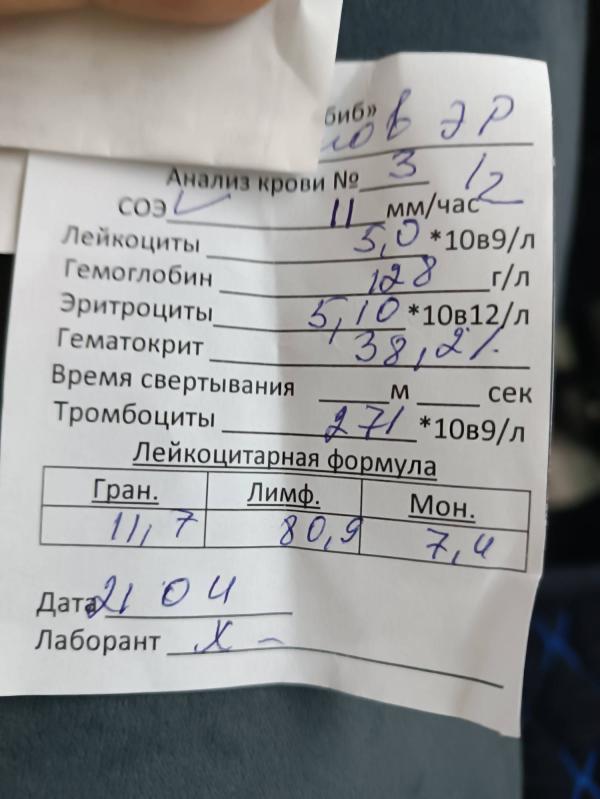 биб»
ов ЭР
Анализ крови № 3 12
СОЭ 11 мм/час
Лейкоциты 5,0 *10в9/л
Гемоглобин 128 г/л
Эритроциты 5,10 *10в12/л
Гематокрит 38,2%
Время свертывания ____м ____ сек
Тромбоциты 271 *10в9/л
Лейкоцитарная формула
Гран. Лимф. Мон.
11,7 80,9 7,4
Дата 21 04
Лаборант